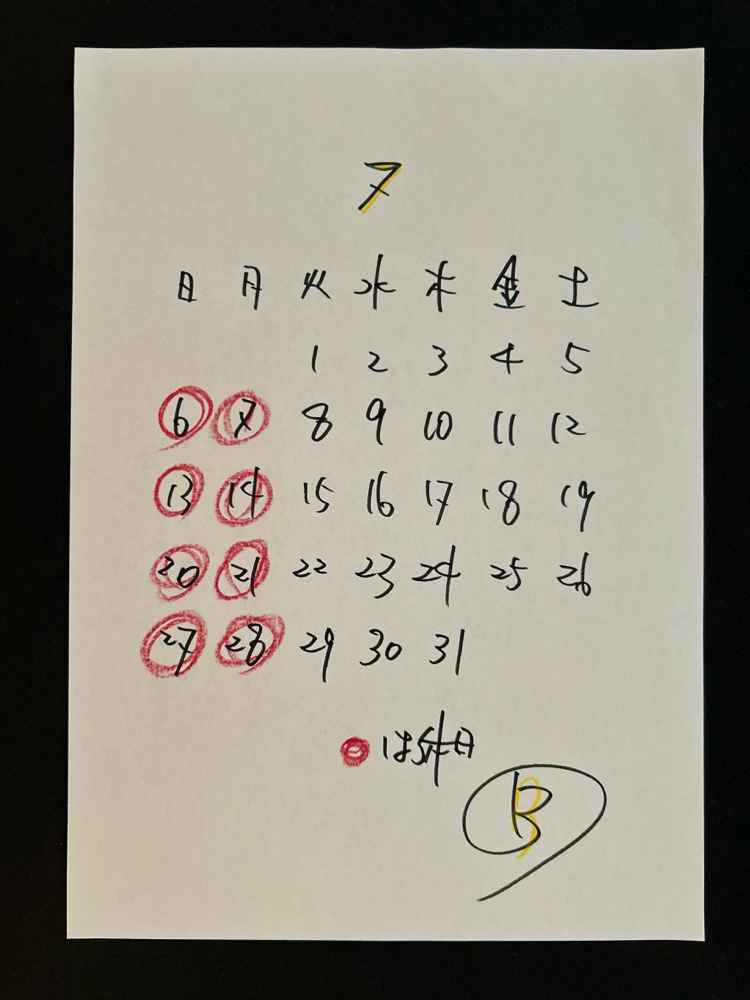 7
日 月 火 水 木 金 土
1 2 3 4 5
6 7 8 9 10 11 12
13 14 15 16 17 18 19
20 21 22 23 24 25 26
27 28 29 30 31
は休日
B